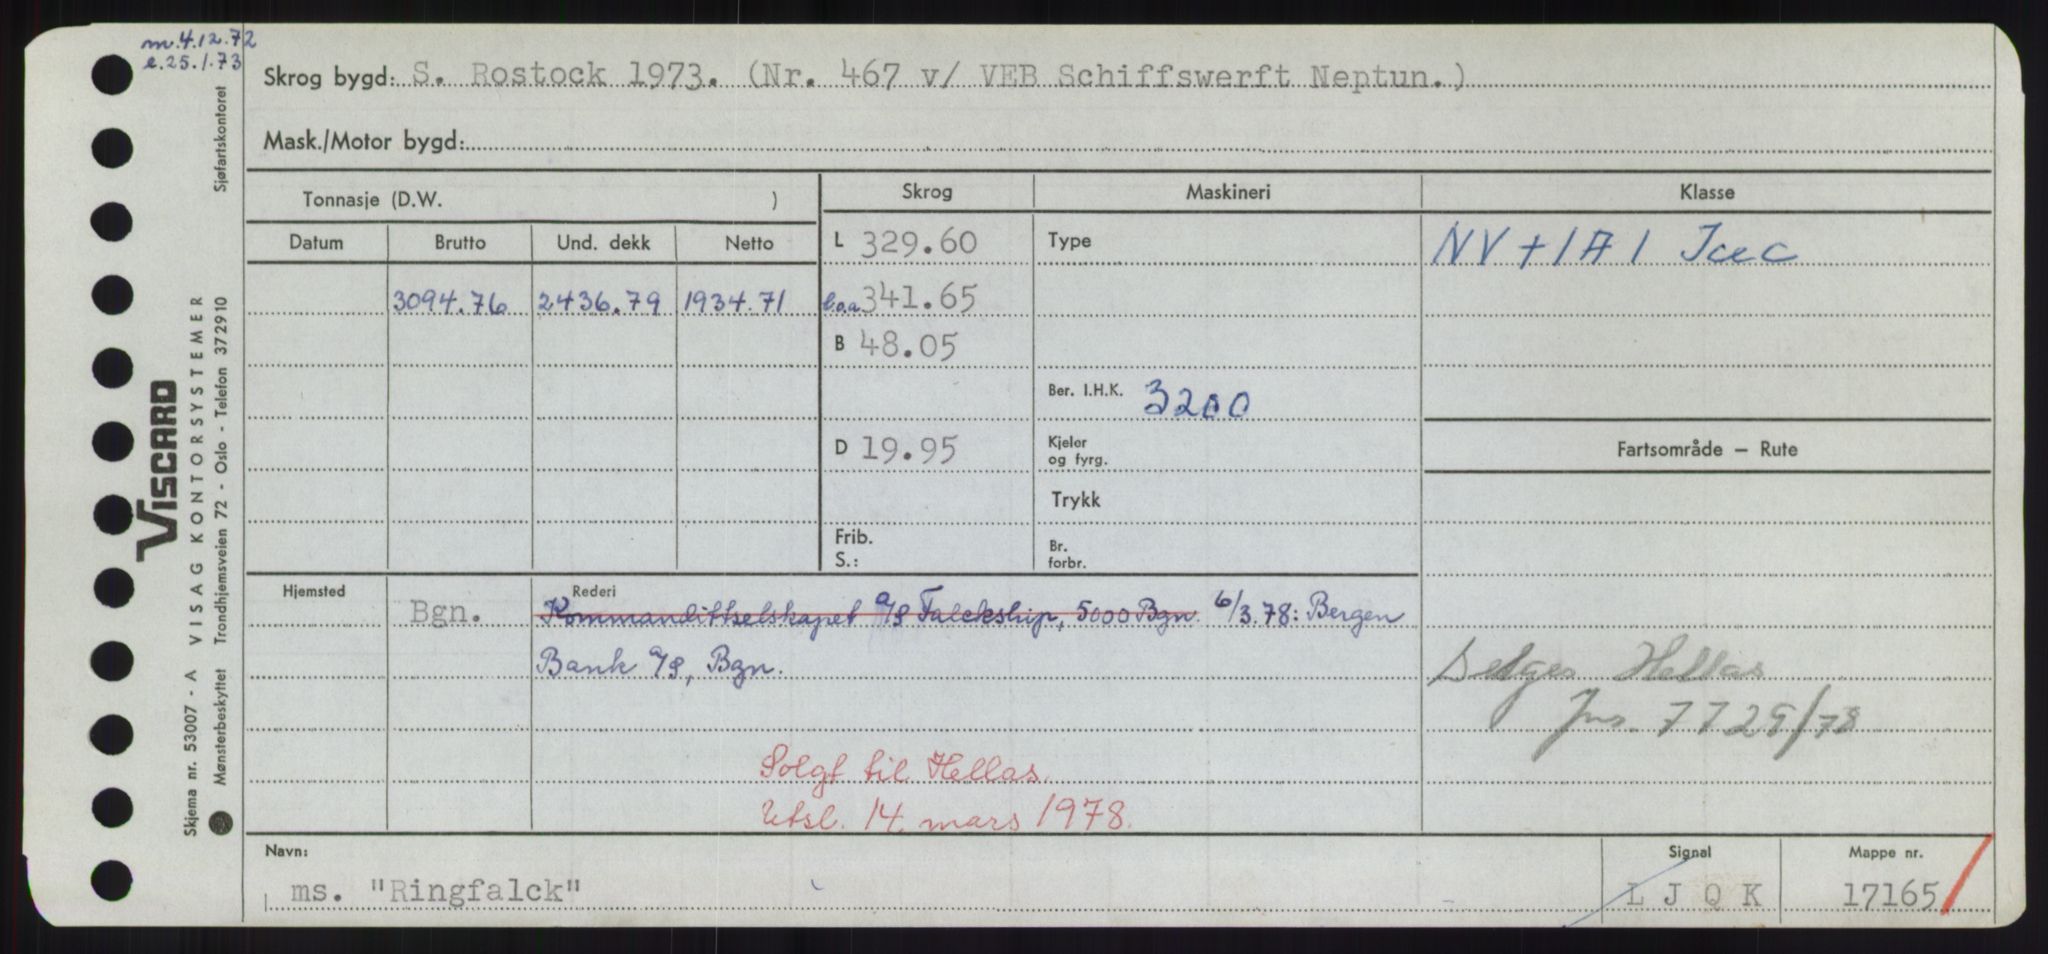 m. 4.12.72
e. 25.1.73
Skrog bygd: S. Rostock 1973. (Nr. 467 v/ VEB Schiffswerft Neptun.)
Mask./Motor bygd:
Tonnasje (D.W. ) Skrog Maskineri Klasse
Datum Brutto Und. dekk Netto L 329.60 Type NV +1A1 IceC
3094.76 2436.79 1934.71 l.o.a 341.65
B 48.05
Ber. I.H.K. 3200
D 19.95 Kjeler og fyrg. Fartsområde – Rute
Trykk
Frib. S.: Br. forbr.
Hjemsted Rederi
Bgn. Kommandittselskapet a/s Falckship, 5000 Bgn. 6/3.78: Bergen
Bank a/s, Bgn.
Selges Hellas
Jns. 7725/78
Solgt til Hellas.
Utsl. 14. mars 1978.
Navn: Signal Mappe nr.
ms. "Ringfalck" L J Q K 17165
VISCARD
Skjema nr. 53007 - A VISAG KONTORSYSTEMER
Mønsterbeskyttet Trondhjemsveien 72 - Oslo - Telefon 372910 Sjøfartskontoret